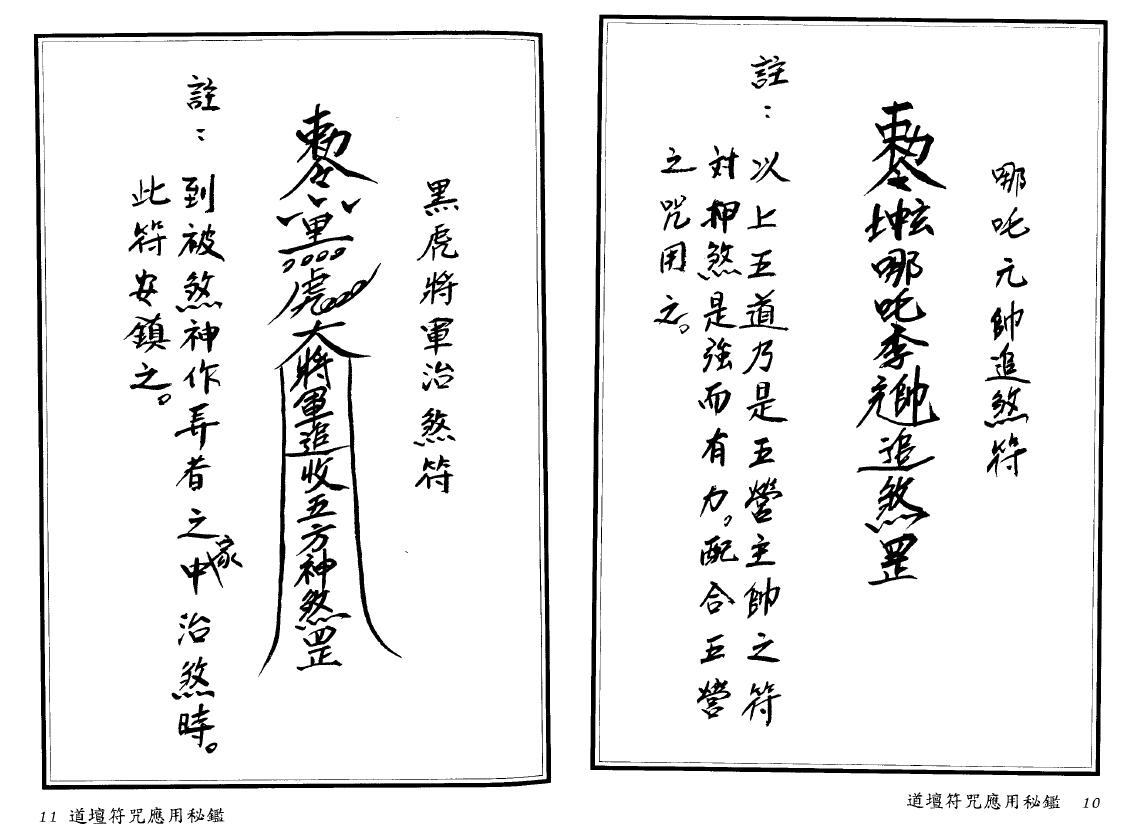 哪吒元帥追煞符
勅令坤眩哪吒李元帥追煞罡
註：以上五道乃是五營主帥之符
対押煞是強而有力。配合五營
之咒用之。
道壇符咒應用秘鑑 10
黑虎將軍治煞符
勅令黑虎大將軍追收五方神煞罡
註：到被煞神作弄者之家中治煞時。
此符安鎮之。
11 道壇符咒應用秘鑑